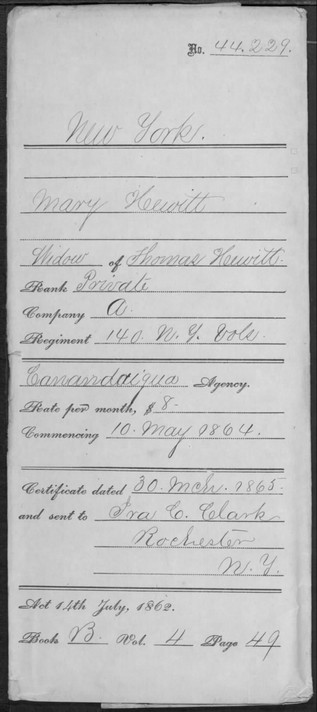 No. 44.229.
New York.
Mary Hewitt
Widow of Thomas Hewitt.
Rank Private
Company A
Regiment 140. N. Y. Vols.
Canandaigua Agency.
Rate per month, $8.
Commencing 10. May 1864.
Certificate dated 30. Mch. 1865.
and sent to Ira C. Clark
Rochester
N. Y.
Act 14th July, 1862.
Book B. Vol. 4 Page 49